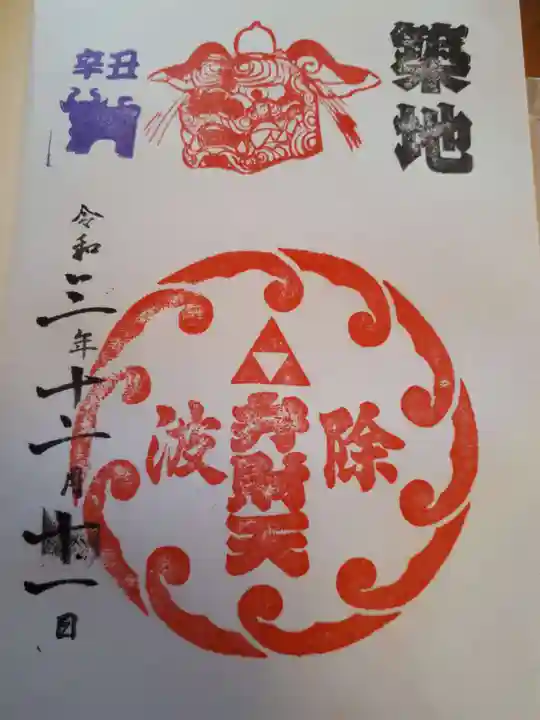 築地
辛丑
除
弁財天
波
令和三年十二月廿一日